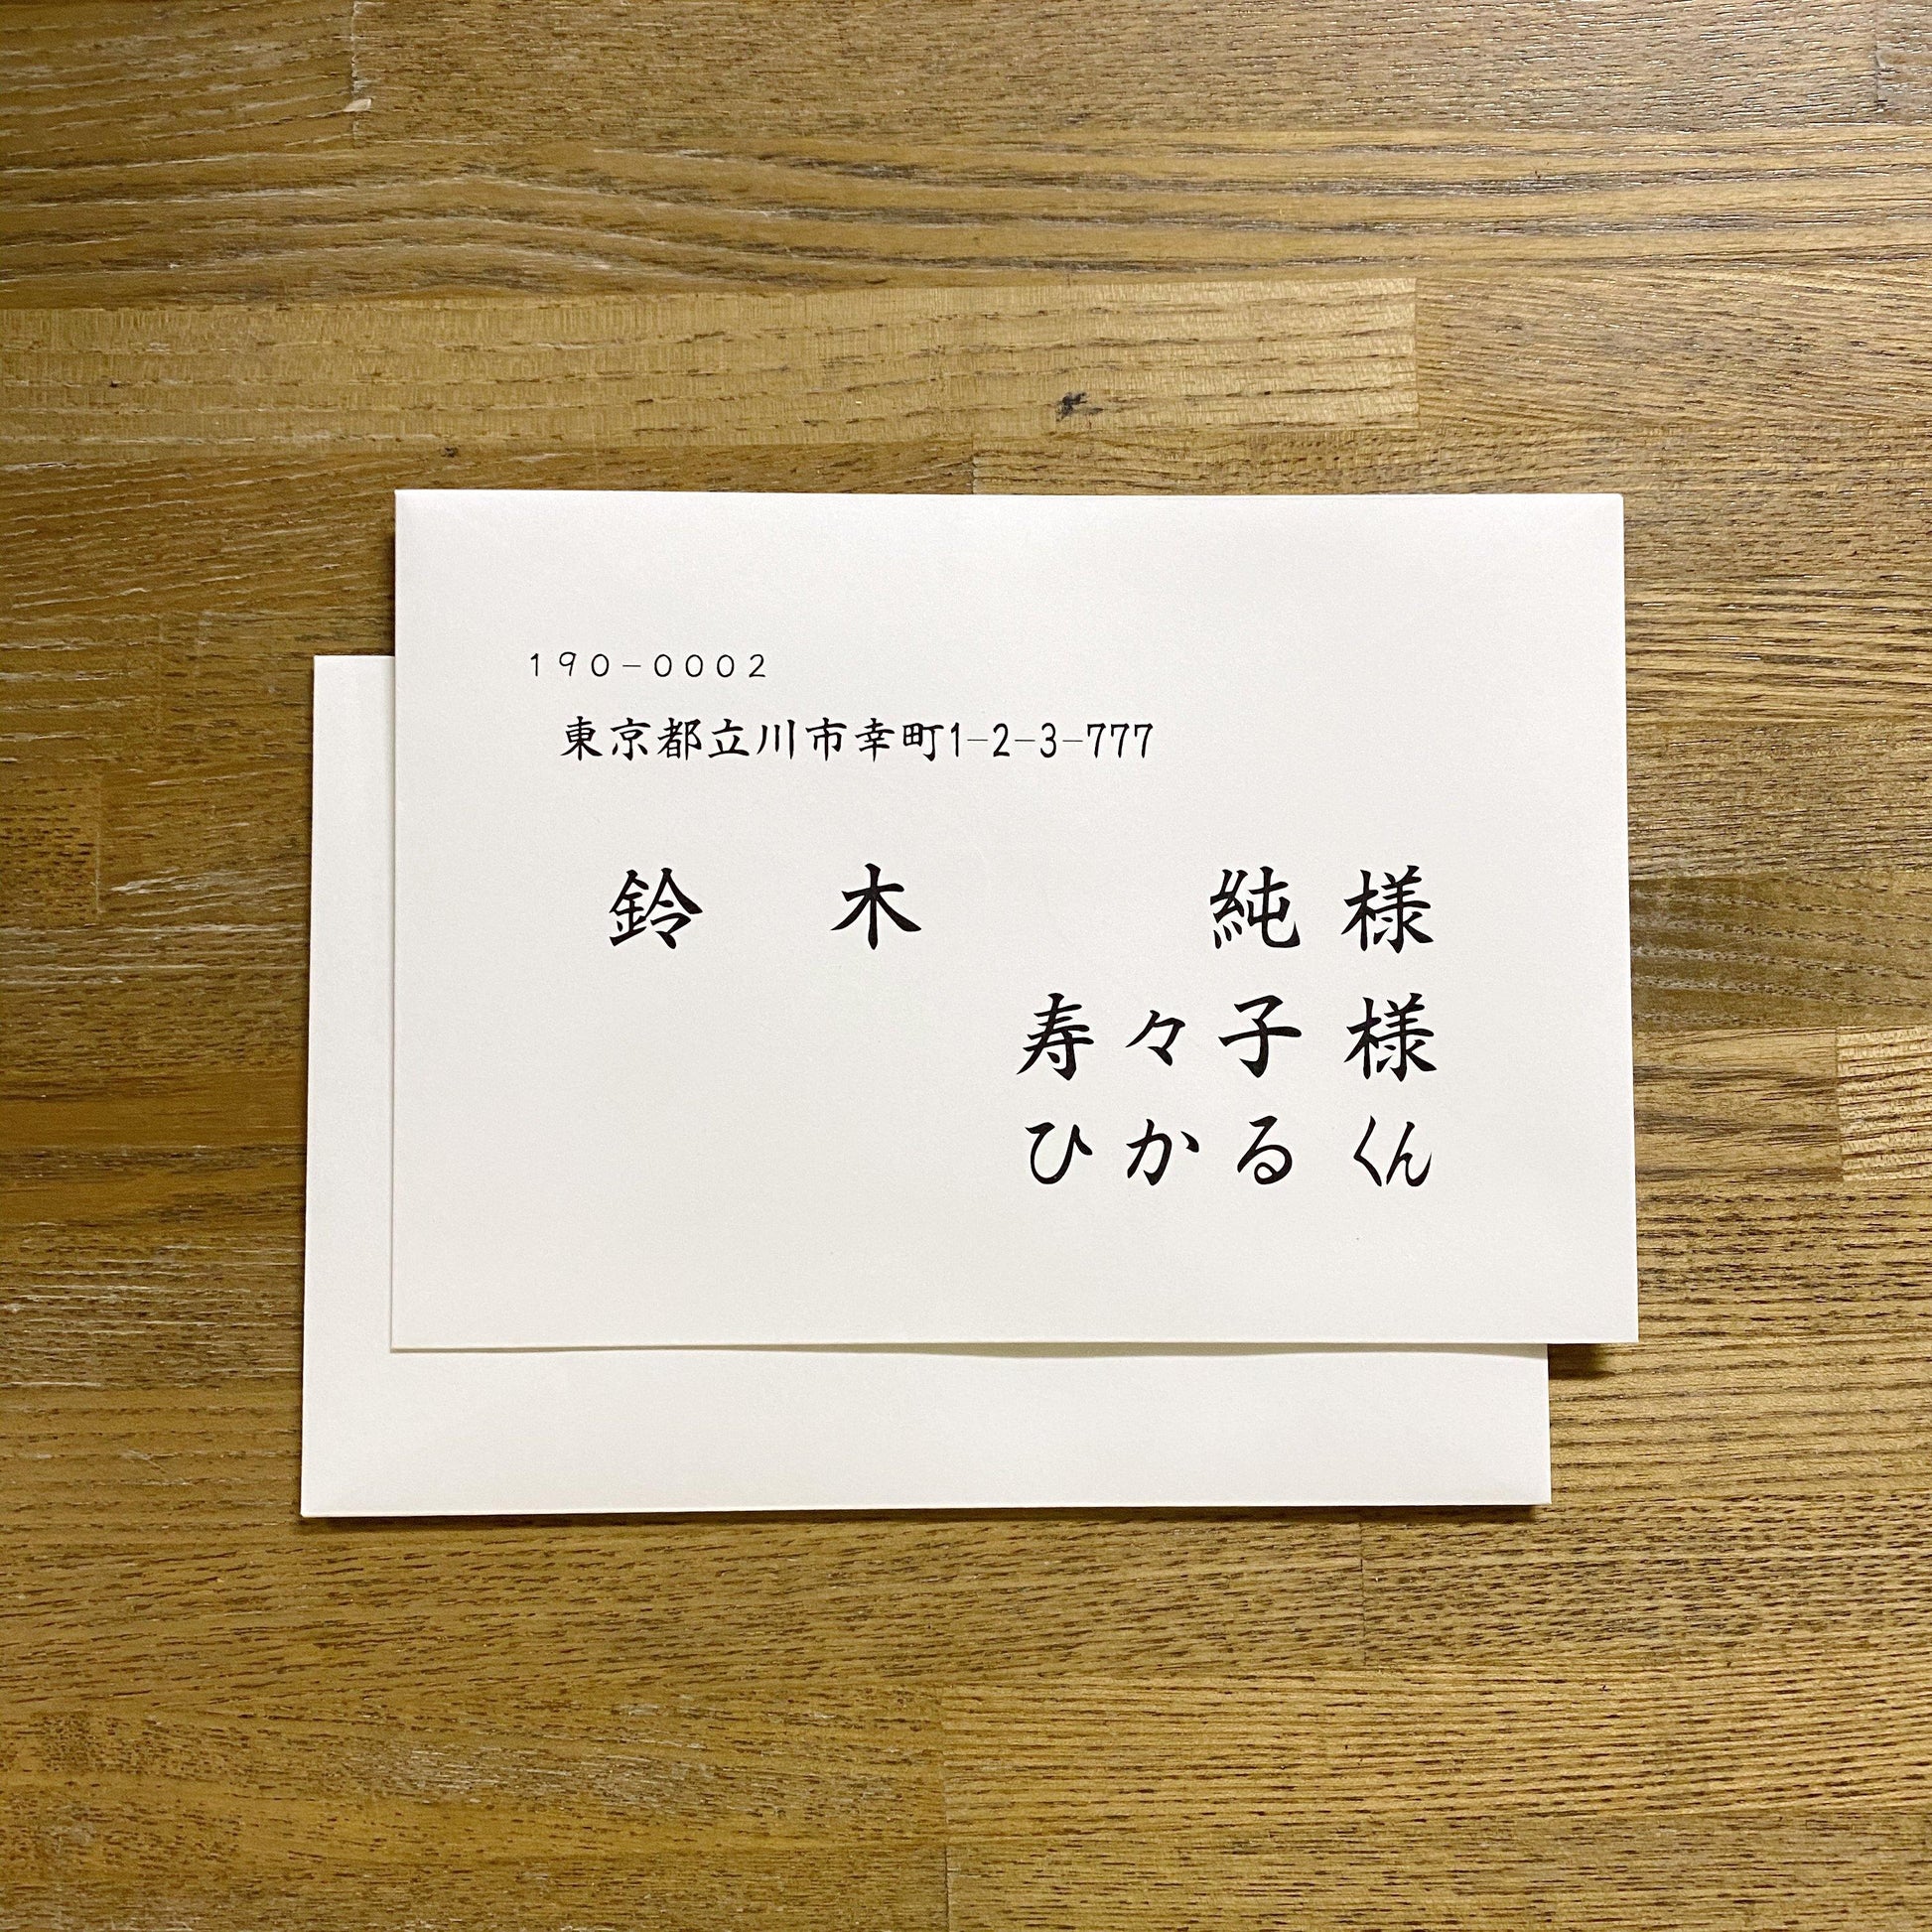 190-0002
東京都立川市幸町1-2-3-777
鈴木 純様
寿々子様
ひかるくん